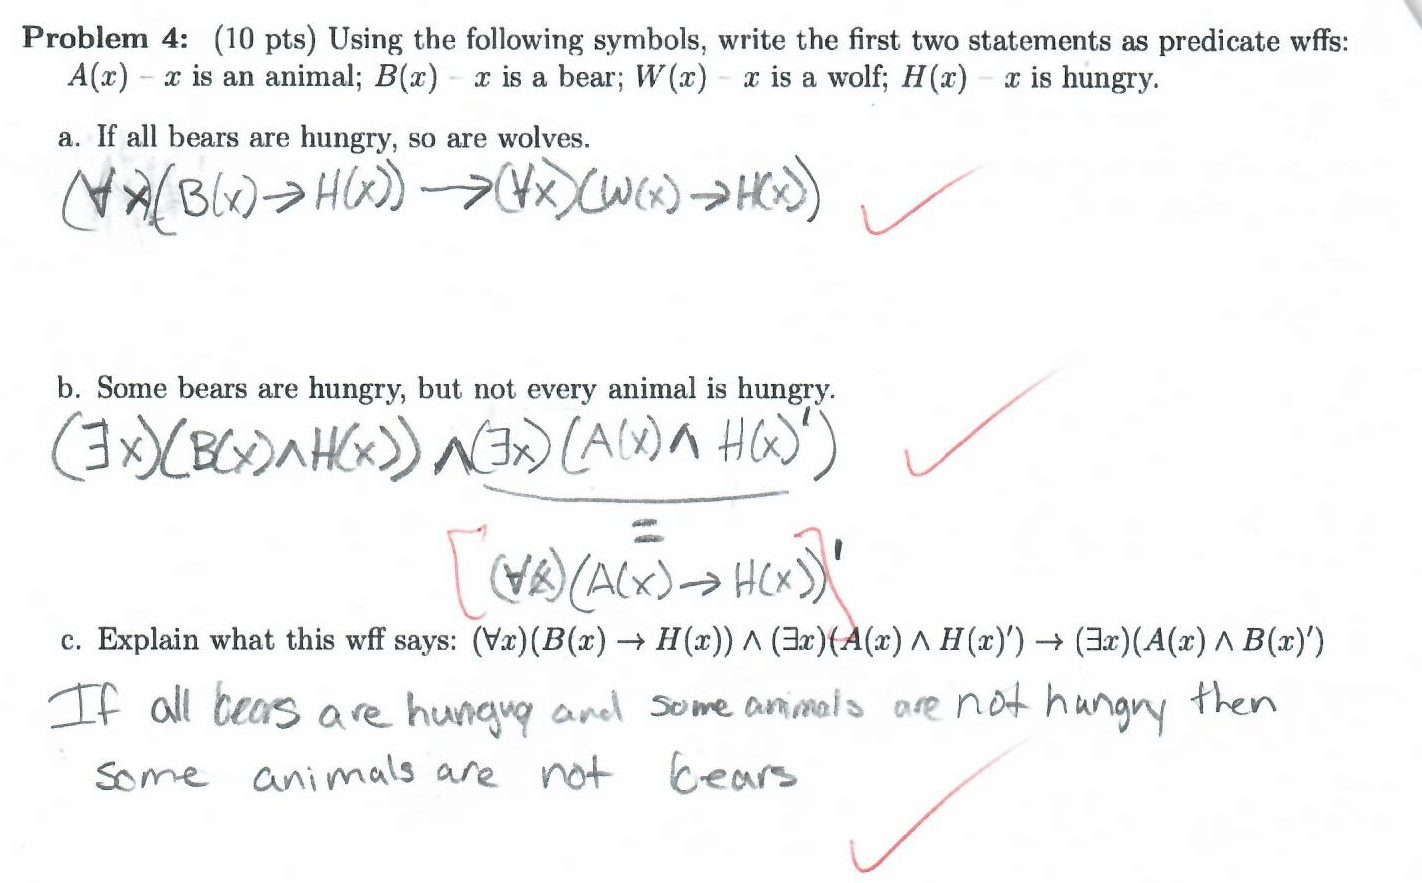 Problem 4: (10 pts) Using the following symbols, write the first two statements as predicate wffs:
A(x) – x is an animal; B(x) – x is a bear; W(x) – x is a wolf; H(x) – x is hungry.
a. If all bears are hungry, so are wolves.
(∀x)(B(x)→H(x)) → (∀x)(W(x)→H(x))
b. Some bears are hungry, but not every animal is hungry.
(∃x)(B(x)∧H(x)) ∧ (∃x)(A(x)∧ H(x)')
=
[(∀x)(A(x)→ H(x))]'
c. Explain what this wff says: (∀x)(B(x) → H(x)) ∧ (∃x)(A(x) ∧ H(x)′) → (∃x)(A(x) ∧ B(x)′)
If all bears are hungry and some animals are not hungry then
some animals are not bears